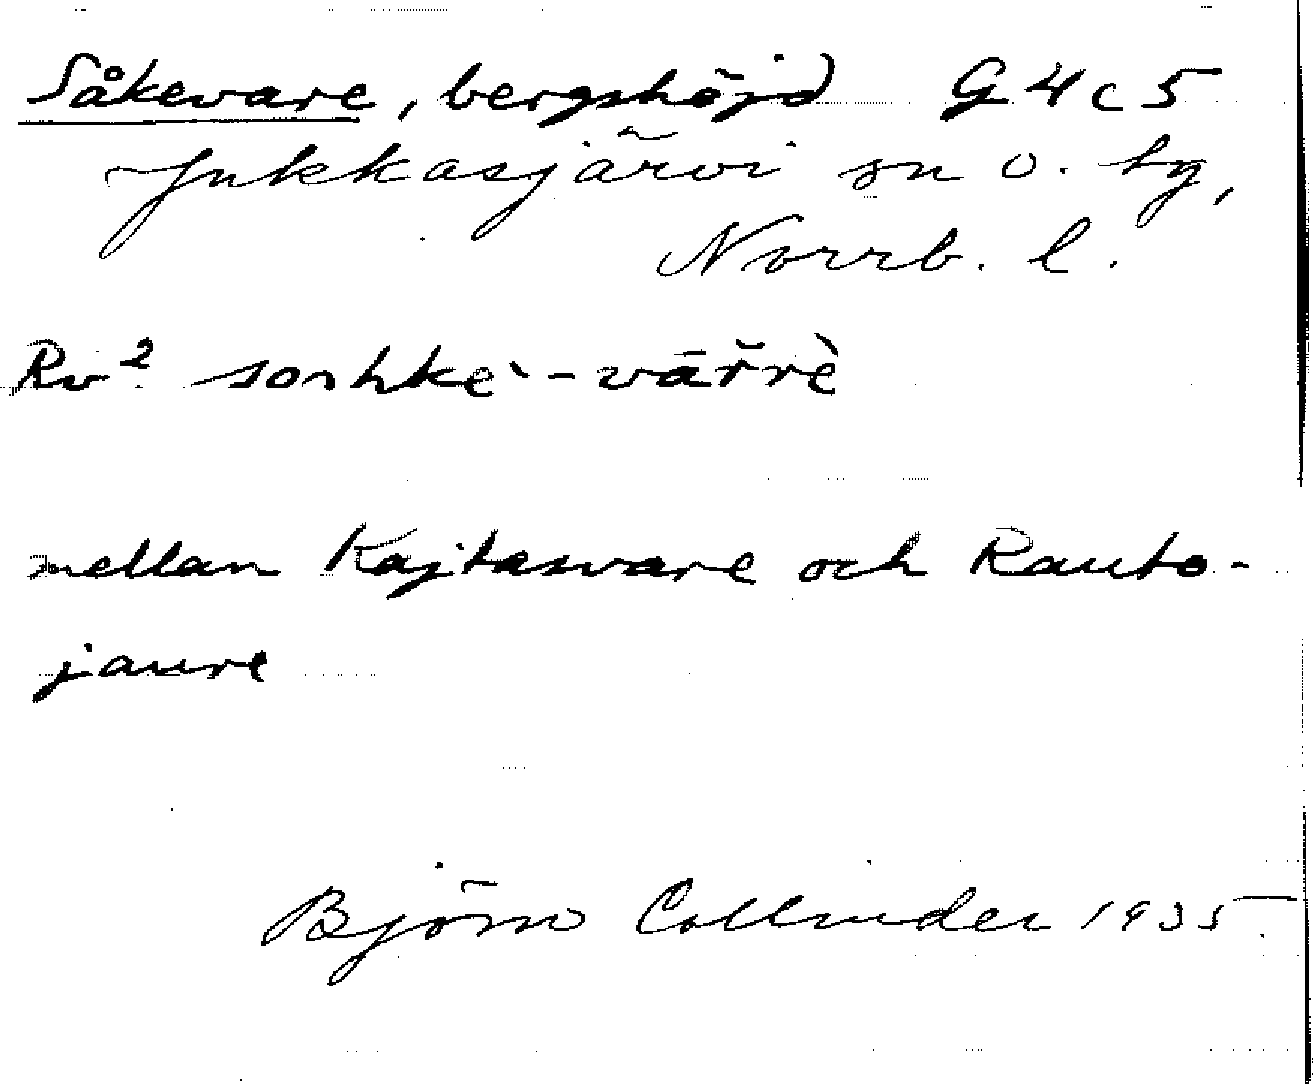 Såkevare, bergshöjd G4c5
Jukkasjärvi sn o. by,
Norrb. l.
Rv²
mellan Kajtasvare och Rauto-
jaure
Björn Collinder 1935